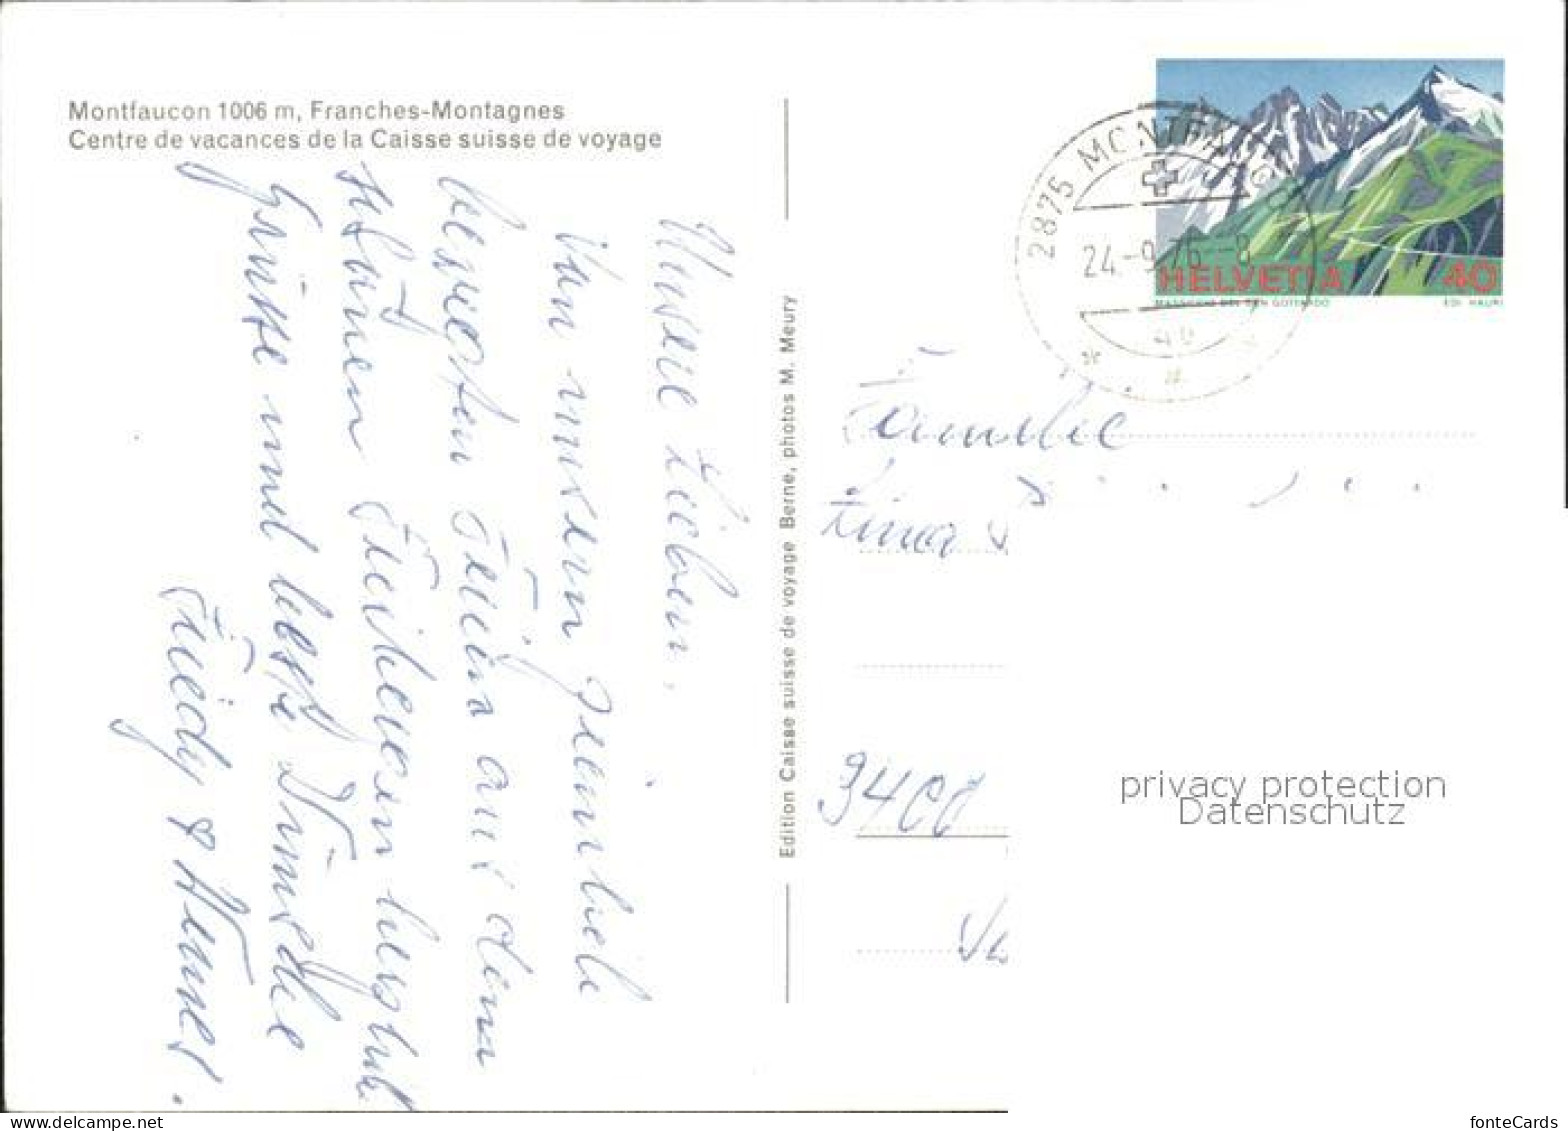 Montfaucon 1006 m, Franches-Montagnes
Centre de vacances de la Caisse suisse de voyage
Unsere Lieben,
Von unsern
Ferien aus dem
schönen herzliche
Grüsse und beste Wünsche
Friedy & Hannes.
Edition Caisse suisse de voyage Berne, photos M. Meury
2875 MONTFAUCON
24-9.76-8
HELVETIA 40
MASSICCIO DEL SAN GOTTARDO EDI HAURI
Familie
9400
privacy protection
Datenschutz
delcampe.net
fonteCards